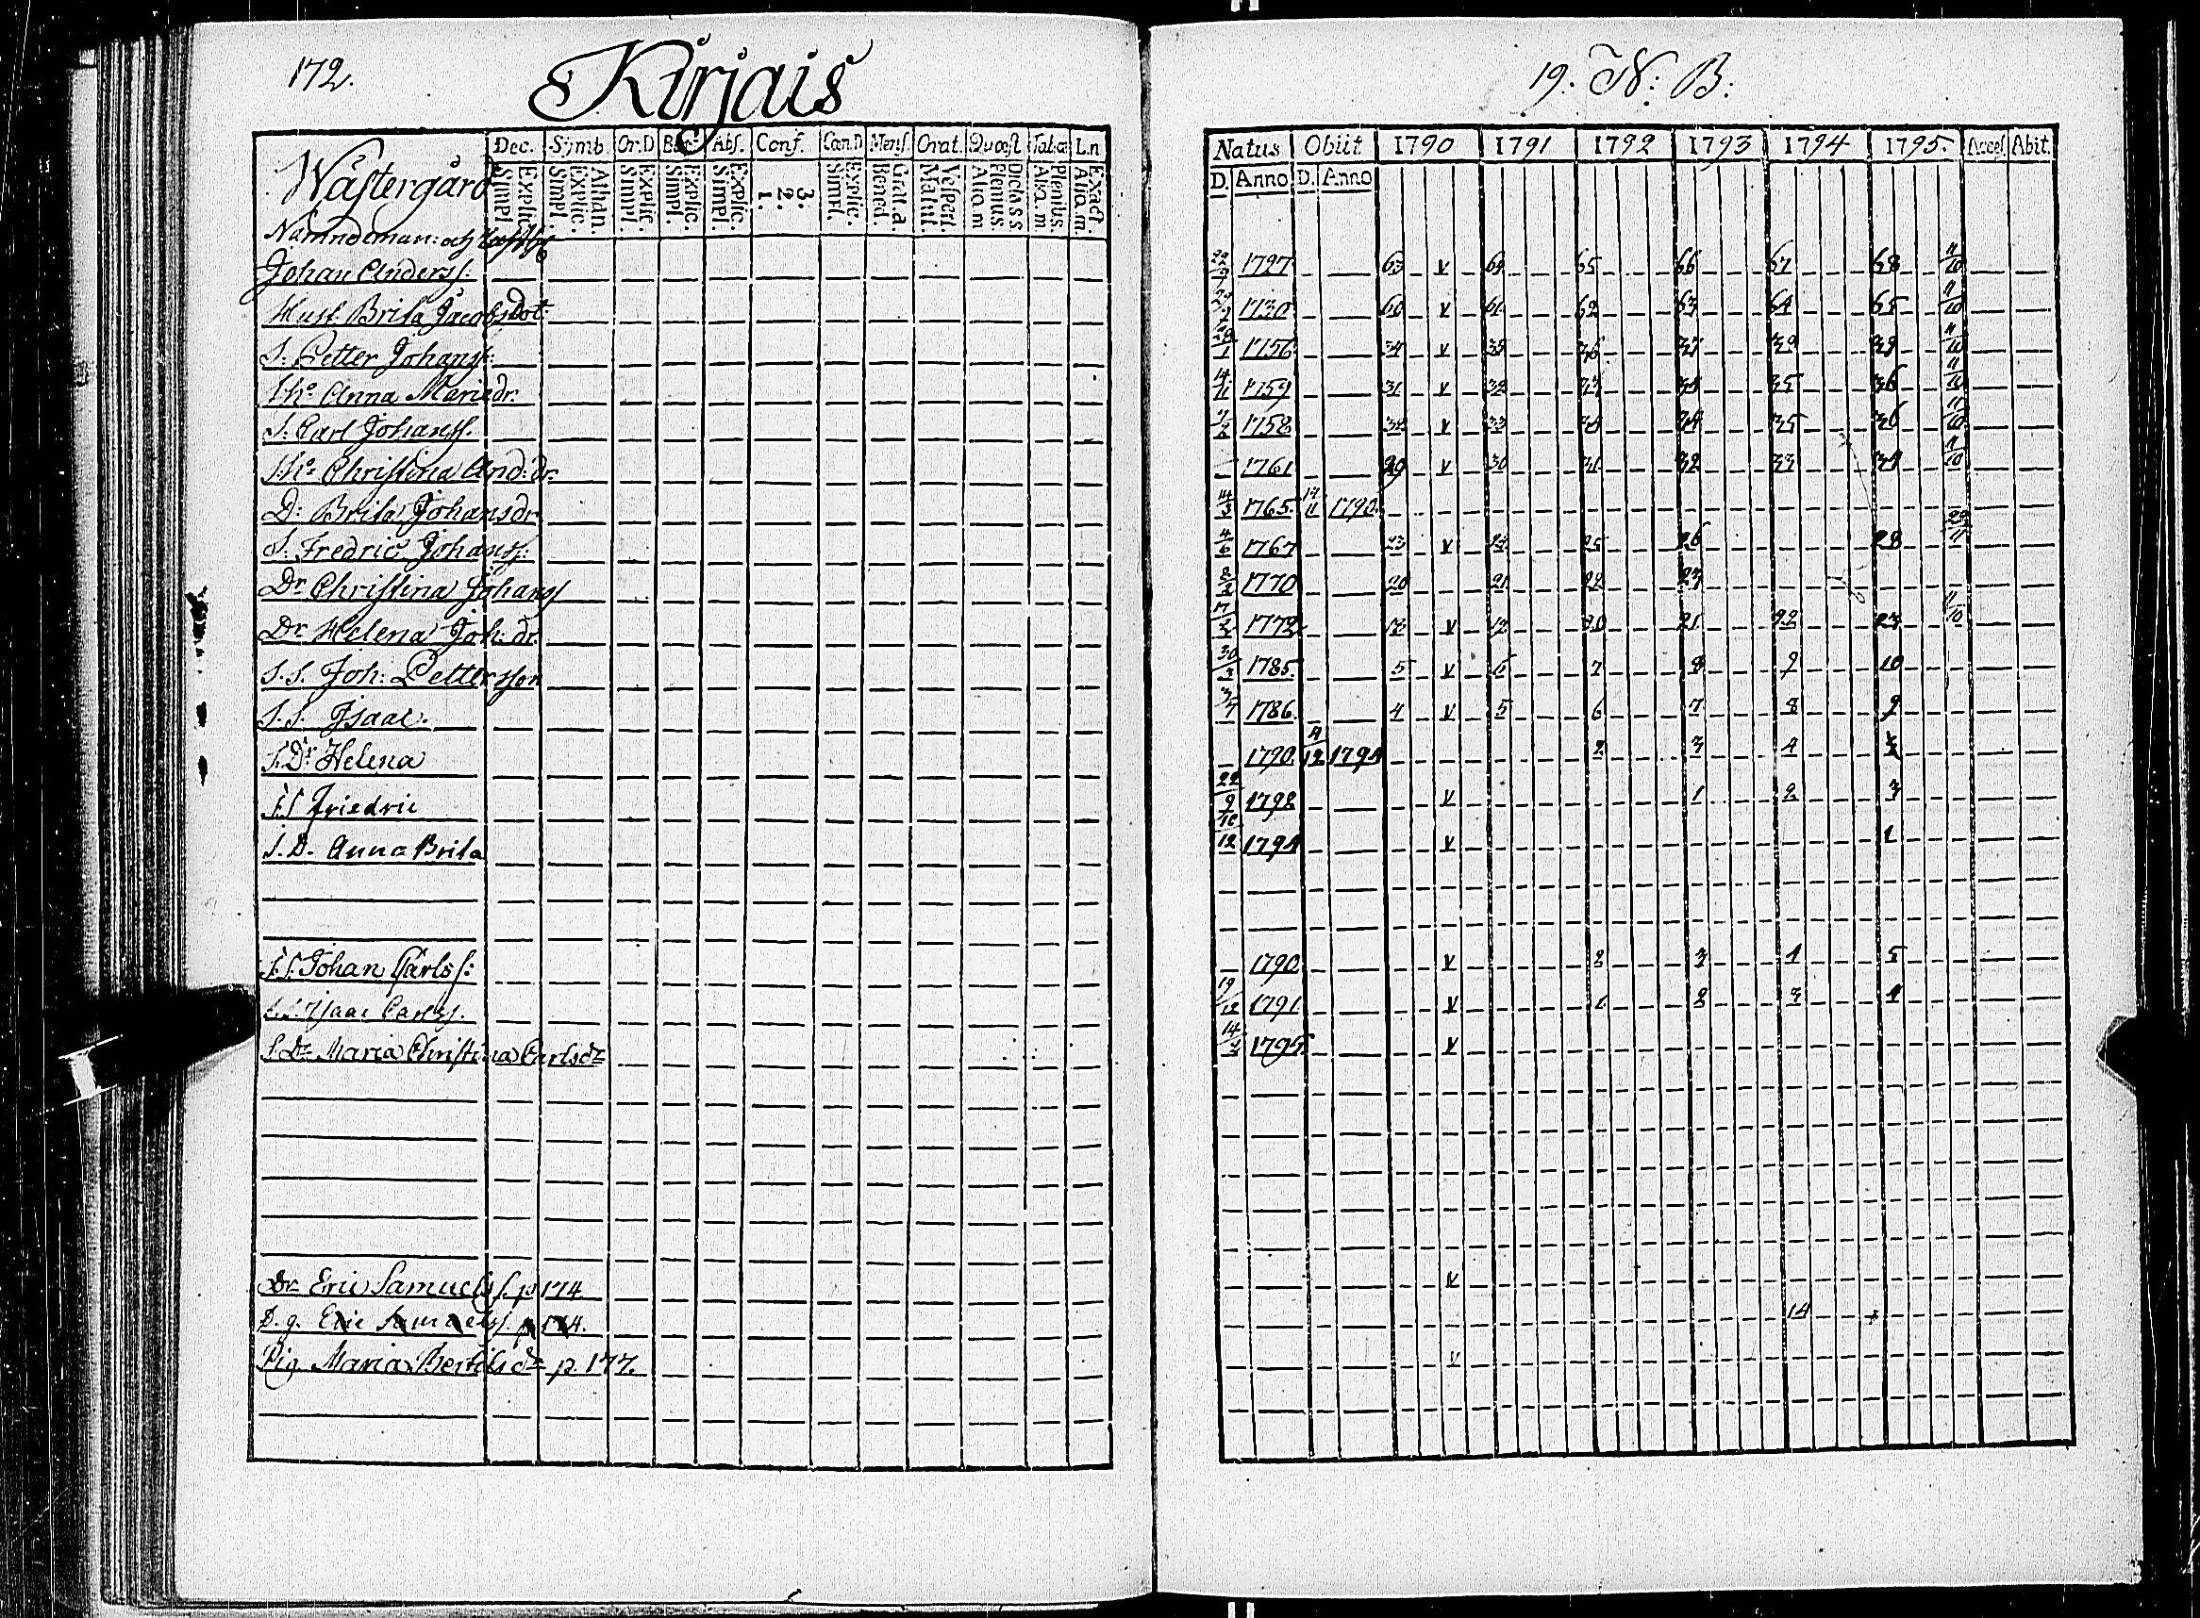 172.
Kirjais
Dec. Symb. Or.D Bapt. Abs. Conf. Cœn.D Mens. Orat. Quæst Tab.œ L.n
Wästergård
Simpl. Explic. Simpl. Explic. Athan. Simpl. Explic. Simpl. Explic. Simpl. Explic. 1. 2. 3. Simpl. Explic. Bened. Grat.a Matut. Vespert. Aliq.m Plenius. Dict.a S S Aliq.m. Plenius. Aliq.m. Exact.
Nämndeman: och
Johan Anderss.
Hust. Brita Jacobsdot.
S. Petter Johanss.
S.h.o Anna Mariædr.
S. Carl Johanss.
S.h.o Christina And: dr.
D: Brita Johansdr
S. Fredric Johanss:
Dr Christina Johans
Dr Helena Joh: dr.
S.S. Joh: Pettersson
S.S. Isaac.
S. Dr Helena
S.S Friedric
S.D. Anna Brita
S.S. Johan Carlss:
S.S. Isaac Carlss.
S Dr Maria Christina Carlsdr
Dr Eric Samuelss. p 174
D.g. Eric Samuelss. p 174.
Pig. Maria Bertilsdr p. 177.
19. N: B:
Natus Obiit 1790 1791 1792 1793 1794 1795. Accel. Abit.
D. Anno D. Anno
1727 63 v 64 65 66 67 68 11/10
1730 60 v 61 62 63 64 65 11/10
1756 34 v 35 36 37 38 39 11/10
14/11 1759 31 v 32 33 34 35 36 11/10
1758 32 v 33 34 34 35 36 11/10
1761 29 v 30 31 32 33 34 11/10
14/3 1765. 1790
4/6 1767 23 v 24 25 26 28
1770 20 21 22 23
1772 18 v 19 20 21 22 23 11/10
30/3 1785. 5 v 6 7 8 9 10
3/7 1786. 4 v 5 6 7 8 9
1790. 4/12 1794 2 3 4
22/9 1792 v 1 2 3
12 1794 v 1
1790 v 2 3 4 5
19/12 1791. v 1 2 3 4
1795. v
v
14
v